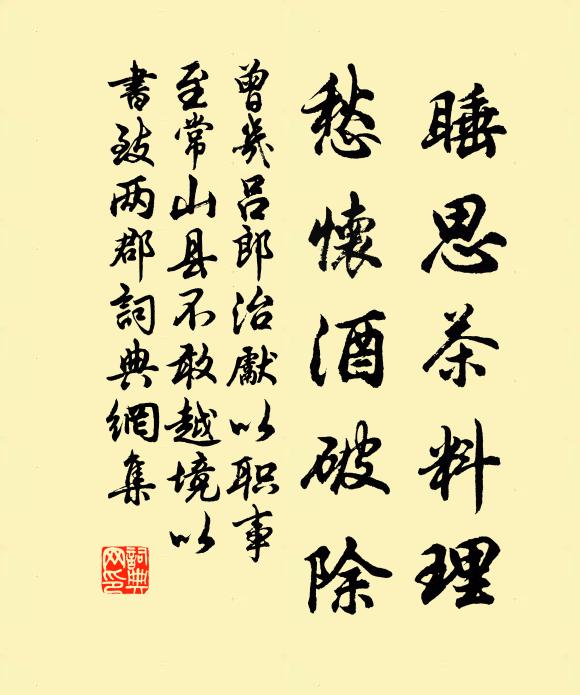 睡思茶料理
愁懷酒破除
曾幾呂郎治獻以职事
至常山县不敢越境以
書致两郡詞典網集
詞典
网印